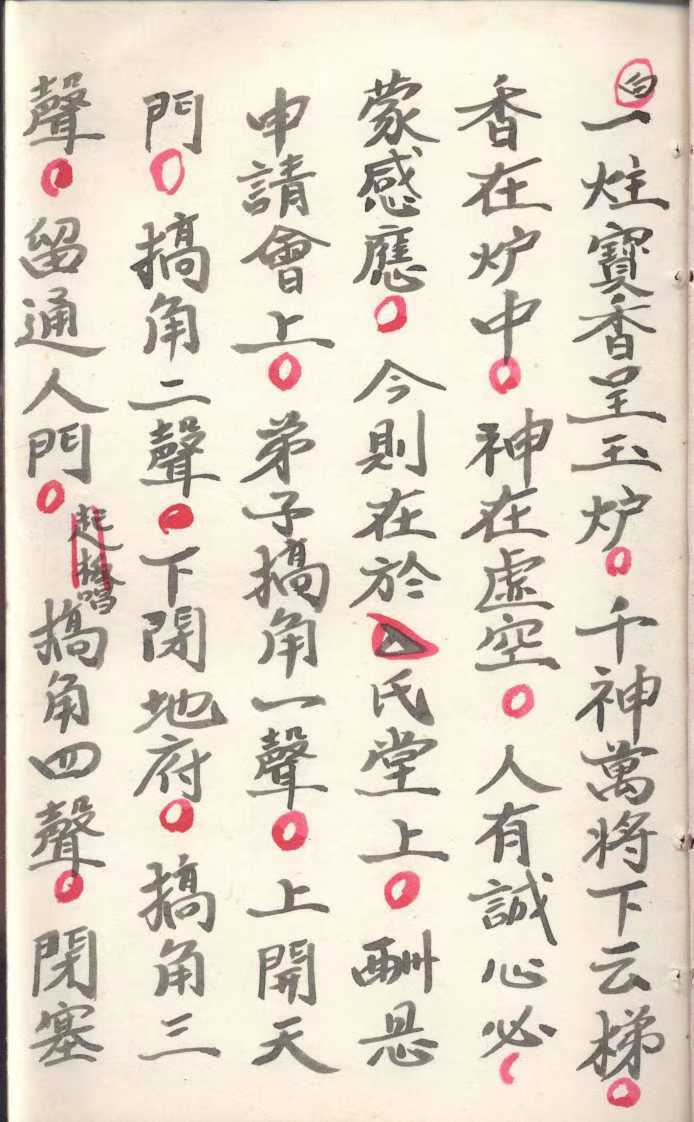 白
一炷寶香呈玉炉千神萬将下云梯
香在炉中神在虛空人有誠心必
蒙感應今則在於厶氏堂上酬恩
申請會上弟子搞角一聲上開天
門搞角二聲下閉地府搞角三
聲留通人門搞角四聲閉塞
起 唱